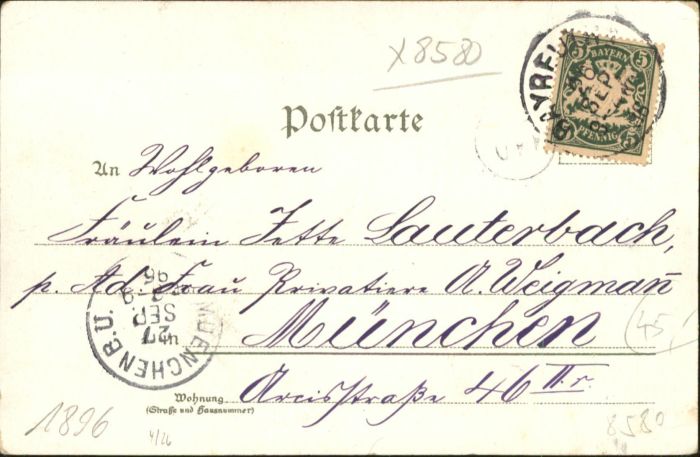 X 8580
BAYREUTH
5 BAYERN 5
PFENNIG
Postkarte
An Wohlgeboren
Fräulein Jette Lauterbach,
p. Ad. Frau Privatiere A. Weigmañ
in München
45,
MUENCHEN B.U.
27
SEP.
96
Wohnung
(Straße und Hausnummer)
Arcisstraße 46 II. r.
1896
4/26
8580